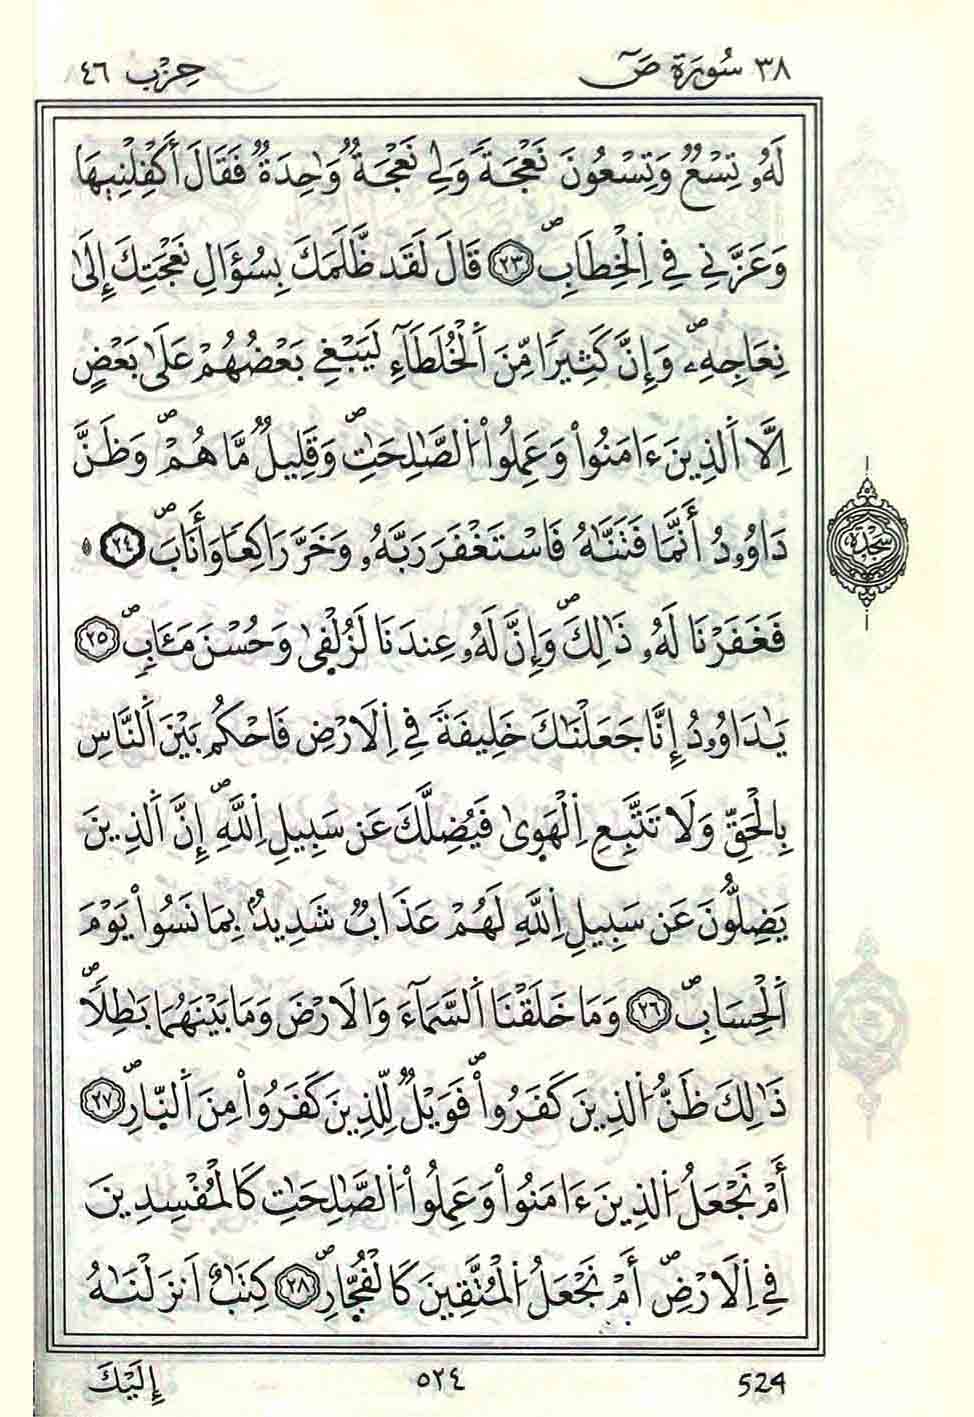 ٣٨ سُورَةُ صَٓ حِزْب ٤٦
لَهُۥ تِسْعٞ وَتِسْعُونَ نَعْجَةٗ وَلِي نَعْجَةٞ وَٰحِدَةٞ فَقَالَ أَكْفِلْنِيهَا
وَعَزَّنِي فِي اِ۬لْخِطَابِۖ ٢٣ قَالَ لَقَد ظَّلَمَكَ بِسُؤَالِ نَعْجَتِكَ إِلَىٰ
نِعَاجِهِۦۖ وَإِنَّ كَثِيرٗا مِّنَ اَ۬لْخُلَطَآءِ لَيَبْغِي بَعْضُهُمْ عَلَىٰ بَعْضٍ
اِلَّا اَ۬لذِينَ ءَامَنُواْ وَعَمِلُواْ اُ۬لصَّٰلِحَٰتِۖ وَقَلِيلٞ مَّا هُمْۖ وَظَنَّ
دَاوُۥدُ أَنَّمَا فَتَنَّٰهُ فَاسْتَغْفَرَ رَبَّهُۥ وَخَرَّ رَاكِعٗا وَأَنَابَۖ ٢٤
سَجْدَة
فَغَفَرْنَا لَهُۥ ذَٰلِكَۖ وَإِنَّ لَهُۥ عِندَنَا لَزُلْفَىٰ وَحُسْنَ مَـَٔابٖۖ ٢٥
يَٰدَاوُۥدُ إِنَّا جَعَلْنَٰكَ خَلِيفَةٗ فِي اِ۬لَارْضِ فَاحْكُم بَيْنَ اَ۬لنَّاسِ
بِالْحَقِّ وَلَا تَتَّبِعِ اِ۬لْهَوَىٰ فَيُضِلَّكَ عَن سَبِيلِ اِ۬للَّهِۖ إِنَّ اَ۬لذِينَ
يَضِلُّونَ عَن سَبِيلِ اِ۬للَّهِ لَهُمْ عَذَابٞ شَدِيدُۢ بِمَا نَسُواْ يَوْمَ
اَ۬لْحِسَابِۖ ٢٦ وَمَا خَلَقْنَا اَ۬لسَّمَآءَ وَالَارْضَ وَمَا بَيْنَهُمَا بَٰطِلاٗۖ
ذَٰلِكَ ظَنُّ اُ۬لذِينَ كَفَرُواْۖ فَوَيْلٞ لِّلذِينَ كَفَرُواْ مِنَ اَ۬لنّ۪ارِۖ ٢٧
أَمْ نَجْعَلُ اُ۬لذِينَ ءَامَنُواْ وَعَمِلُواْ اُ۬لصَّٰلِحَٰتِ كَالْمُفْسِدِينَ
فِي اِ۬لَارْضِۖ أَمْ نَجْعَلُ اُ۬لْمُتَّقِينَ كَالْفُجّ۪ارِۖ ٢٨ كِتَٰبٌ اَنزَلْنَٰهُ
524 ٥٢٤ إِلَيْكَ